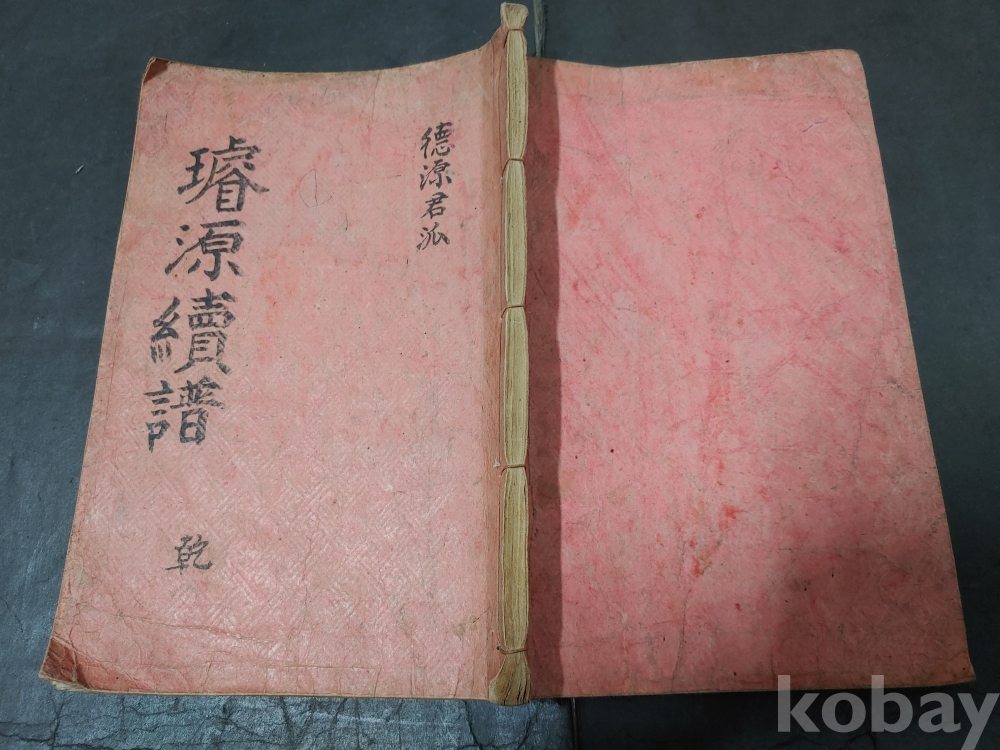 德源君派
璿源續譜
乾
kobay